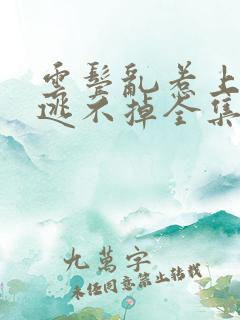 雲鬢亂惹上
逃不掉全集
九萬字
未经同意禁止转载